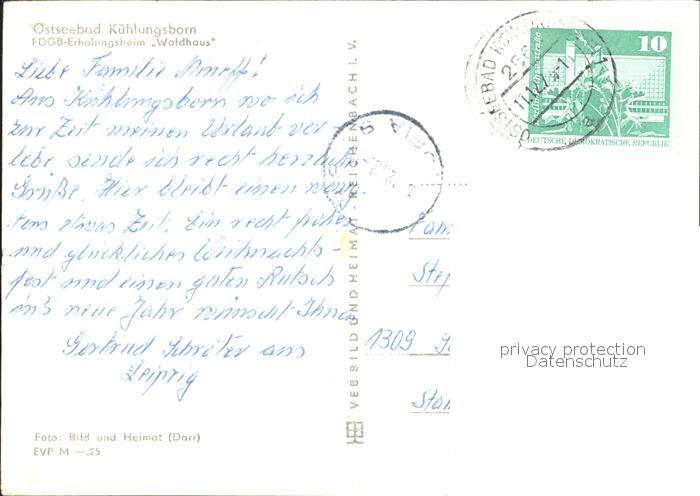 Ostseebad Kühlungsborn
FDGB-Erholungsheim „Waldhaus"
Liebe Familie
Aus Kühlungsborn wo ich
zur Zeit meinen Urlaub ver-
lebe sende ich recht herzliche
Grüße. Hier bleibt einem wenig-
tens etwas Zeit. Ein recht frohes
und glückliches Weihnachts-
fest und einen guten Rutsch
in's neue Jahr wünscht Ihnen
Gertrud Schröter aus
Leipzig
Foto: Bild und Heimat (Darr)
EVP M —,25
VEB BILD UND HEIMAT · REICHENBACH I. V.
OSTSEEBAD
10
DEUTSCHE DEMOKRATISCHE REPUBLIK
Fam
Step
1309
Stam
privacy protection
Datenschutz